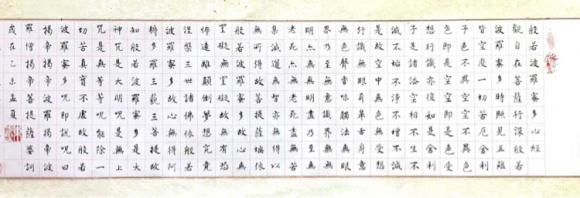 般若波羅蜜多心經
觀自在菩薩行深般若
波羅蜜多時照見五蘊
皆空度一切苦厄舍利
子色不異空空不異色
色即是空空即是色受
想行識亦復如是舍利
子是諸法空相不生不
滅不垢不淨不增不減
是故空中無色無受想
行識無眼耳鼻舌身意
無色聲香味觸法無眼
界乃至無意識界無無
明亦無無明盡乃至無
老死亦無老死盡無苦
集滅道無智亦無得以
無所得故菩提薩埵依
般若波羅蜜多故心無
罣礙無罣礙故無有恐
怖遠離顛倒夢想究竟
涅槃三世諸佛依般若
波羅蜜多故得阿
耨多羅三藐三菩提故
知般若波羅蜜多是大
神咒是大明咒是無上
咒是無等等咒能除一
切苦真實不虛故說般若
波羅蜜多咒即說咒曰
揭帝揭帝波羅揭帝波
羅僧揭帝菩提薩婆訶
歲在乙未孟夏